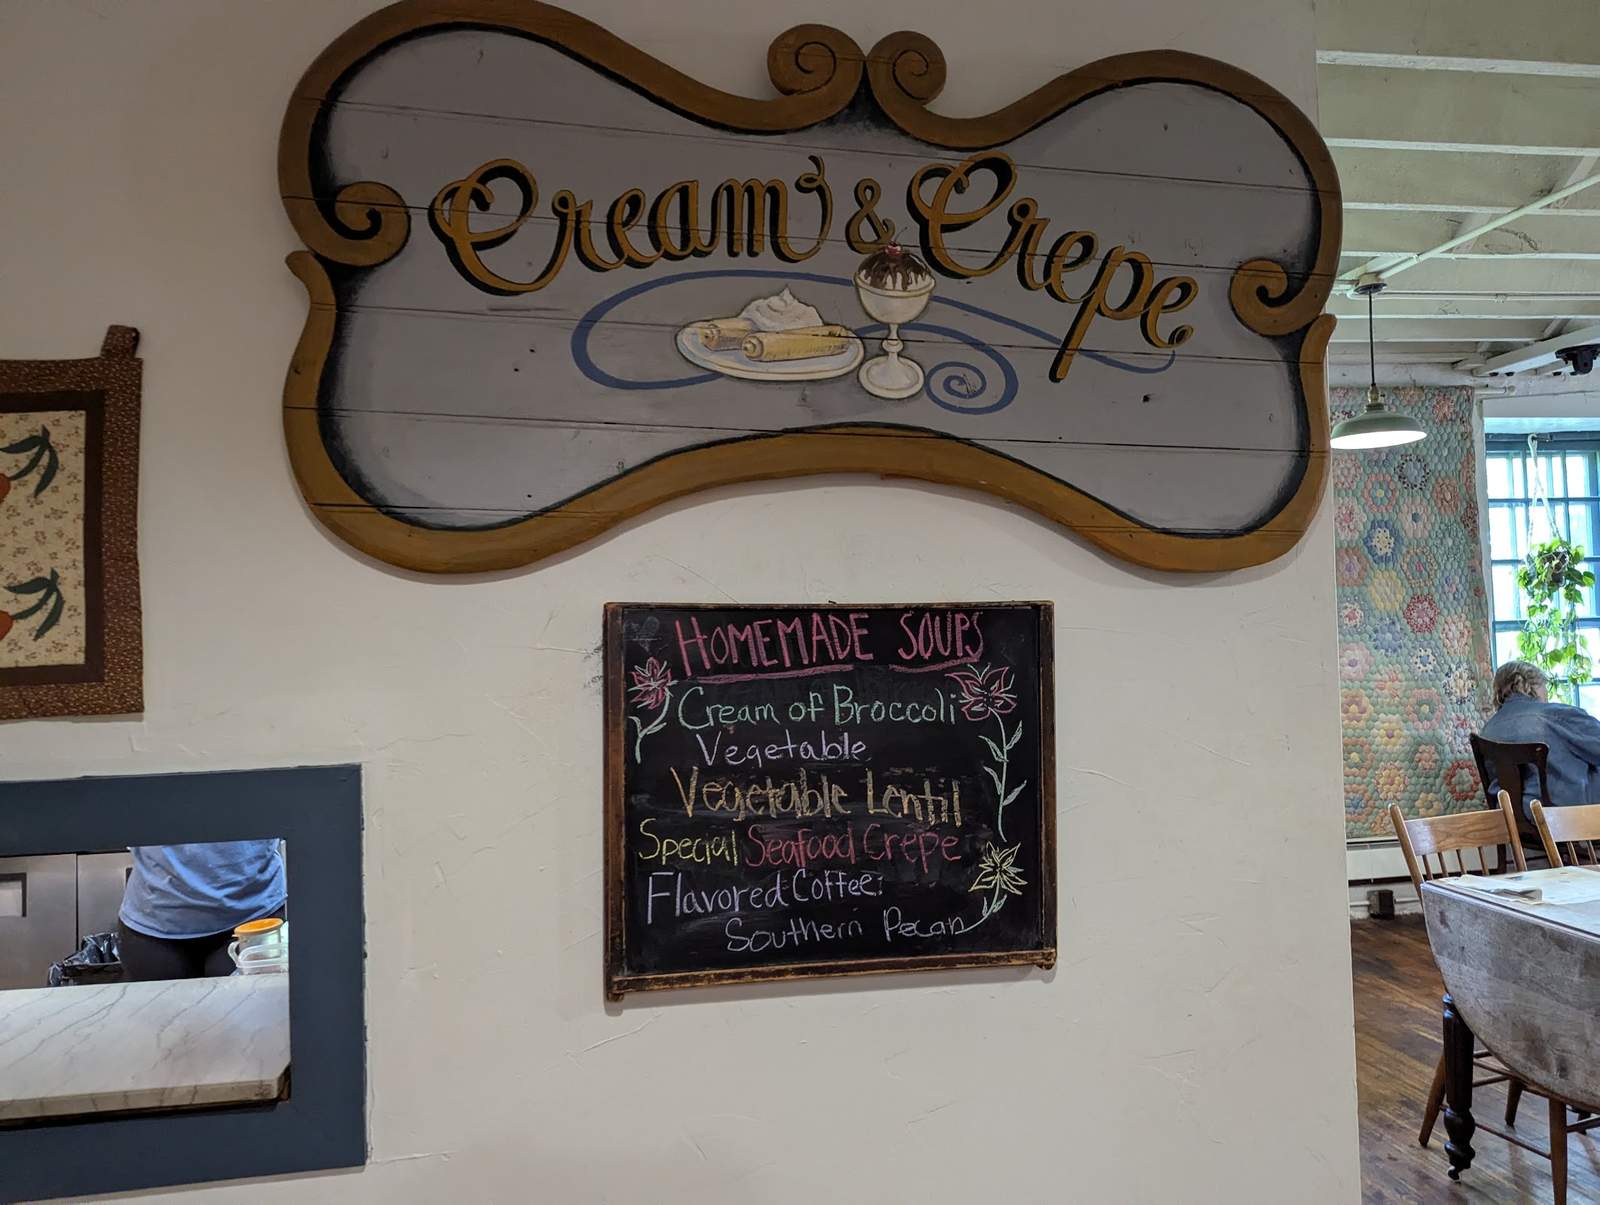 Cream & Crepe
HOMEMADE SOUPS
Cream of Broccoli
Vegetable
Vegetable Lentil
Special Seafood Crepe
Flavored Coffee:
Southern Pecan